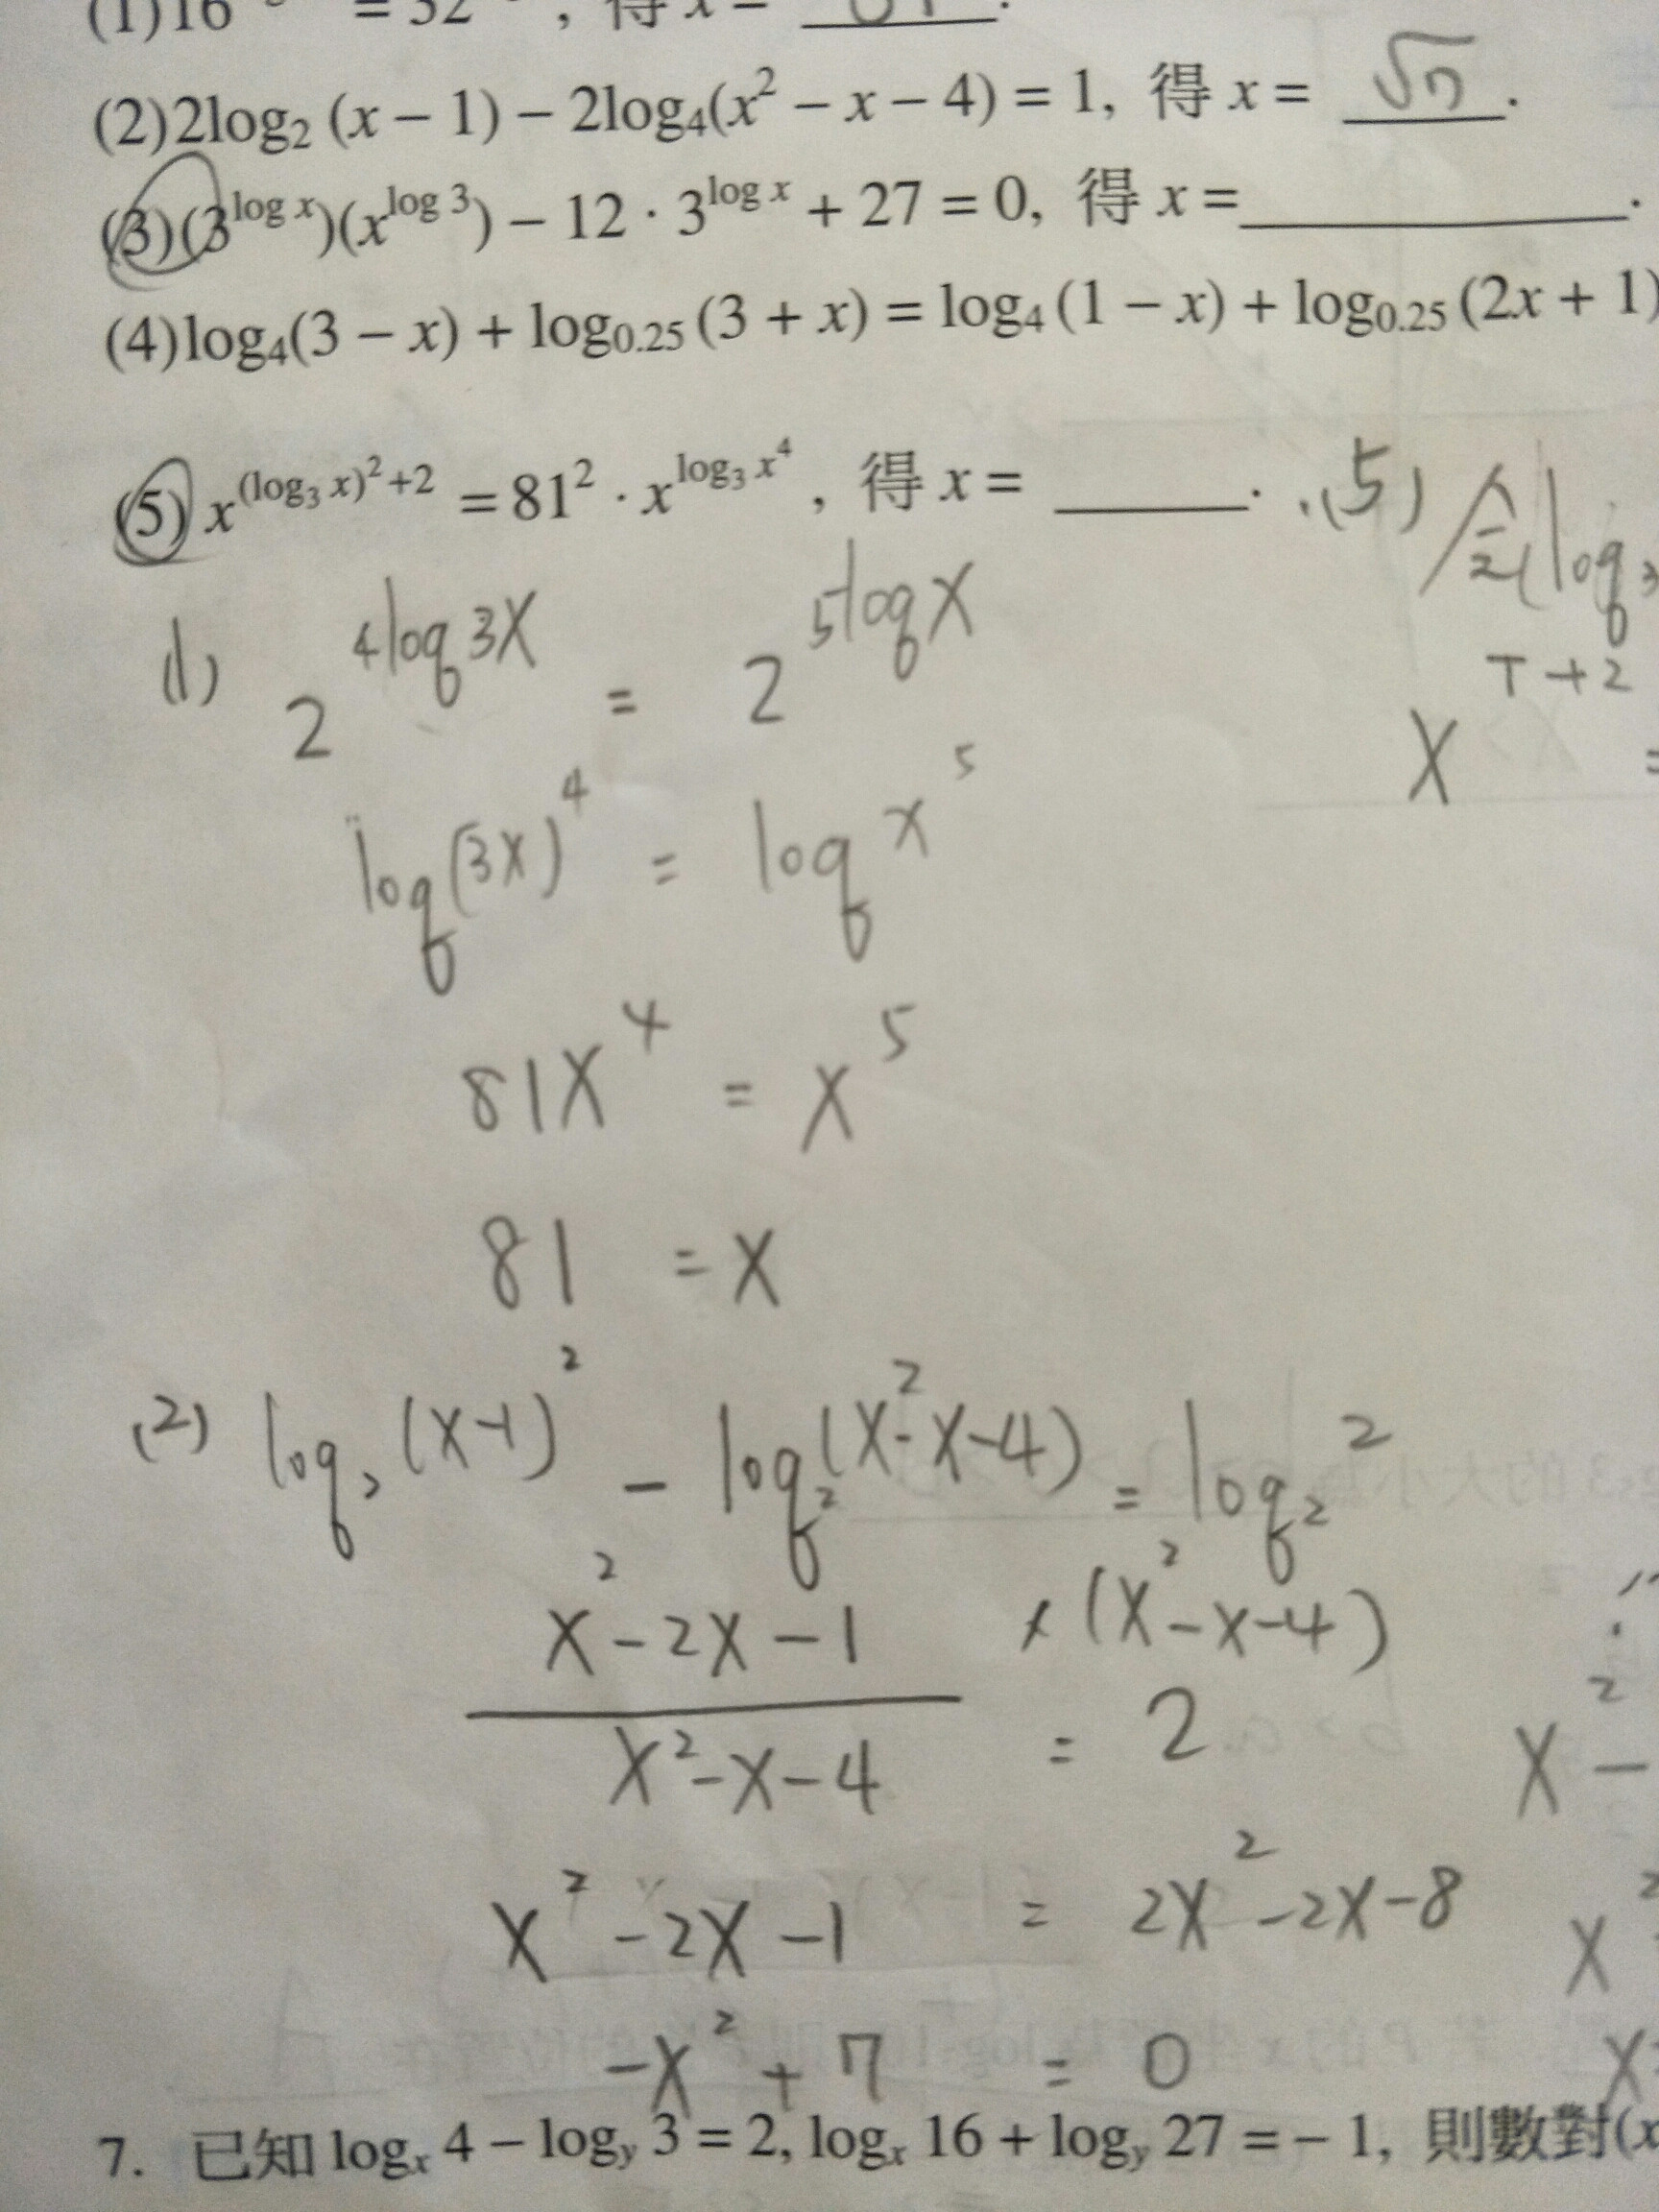 (1)16 = 32 , 得 x = 81.
(2)2log₂ (x − 1) − 2log₄(x² − x − 4) = 1, 得 x = √7.
(3)(3^{log x})(x^{log 3}) − 12 · 3^{log x} + 27 = 0, 得 x =____.
(4)log₄(3 − x) + log₀.₂₅ (3 + x) = log₄ (1 − x) + log₀.₂₅ (2x + 1)
(5) x^{(log₃ x)²+2} = 81² · x^{log₃ x⁴} , 得 x = ____.
(5) 令 log₃
x^{T+2} =
(1) 2^{4log3x} = 2^{5logx}
log(3x)⁴ = log x⁵
81x⁴ = x⁵
81 = x
(2) log₂(x-1)² − log₂(x²-x-4) = log₂2
x²-2x-1 ×(x²-x-4)
x²-x-4 = 2
x -
x²-2x-1 = 2x²-2x-8
x²
-x²+7 = 0
x
7. 已知 logₓ 4 − log_y 3 = 2, logₓ 16 + log_y 27 = − 1, 則數對(x